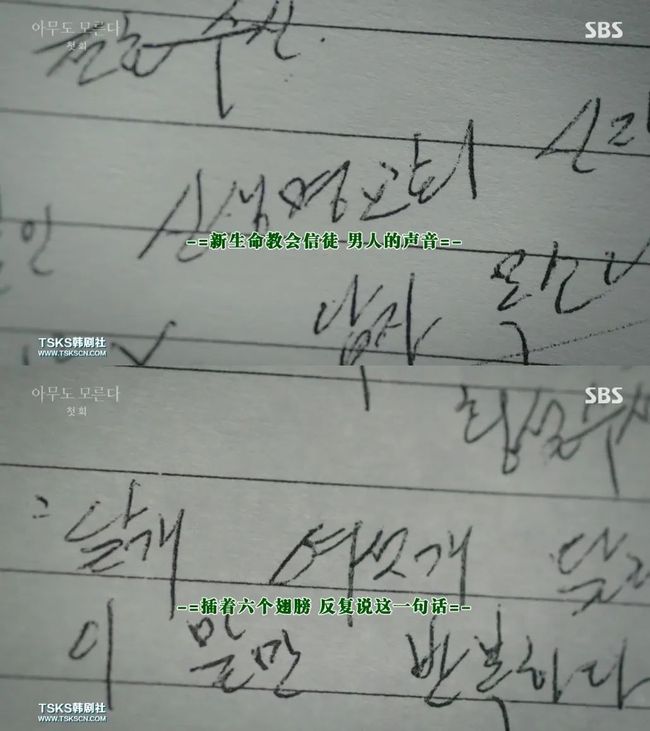 아무도 모른다
첫회
SBS
신생명교회 신
-=新生命教会信徒 男人的声音=-
남자 목소
TSKS韩剧社
WWW.TSKSCN.COM
아무도 모른다
첫회
SBS
날개 여섯개 달
-=插着六个翅膀 反复说这一句话=-
이 말만 반복하다
TSKS韩剧社
WWW.TSKSCN.COM